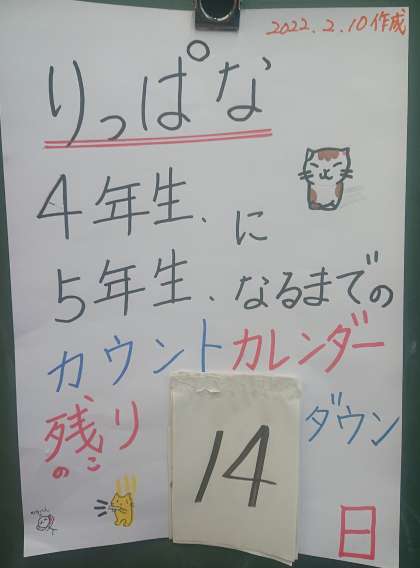 2022.2.10作成
りっぱな
4年生、に
5年生、なるまでの
カウントカレンダー
ダウン
残り
のこ
14
日